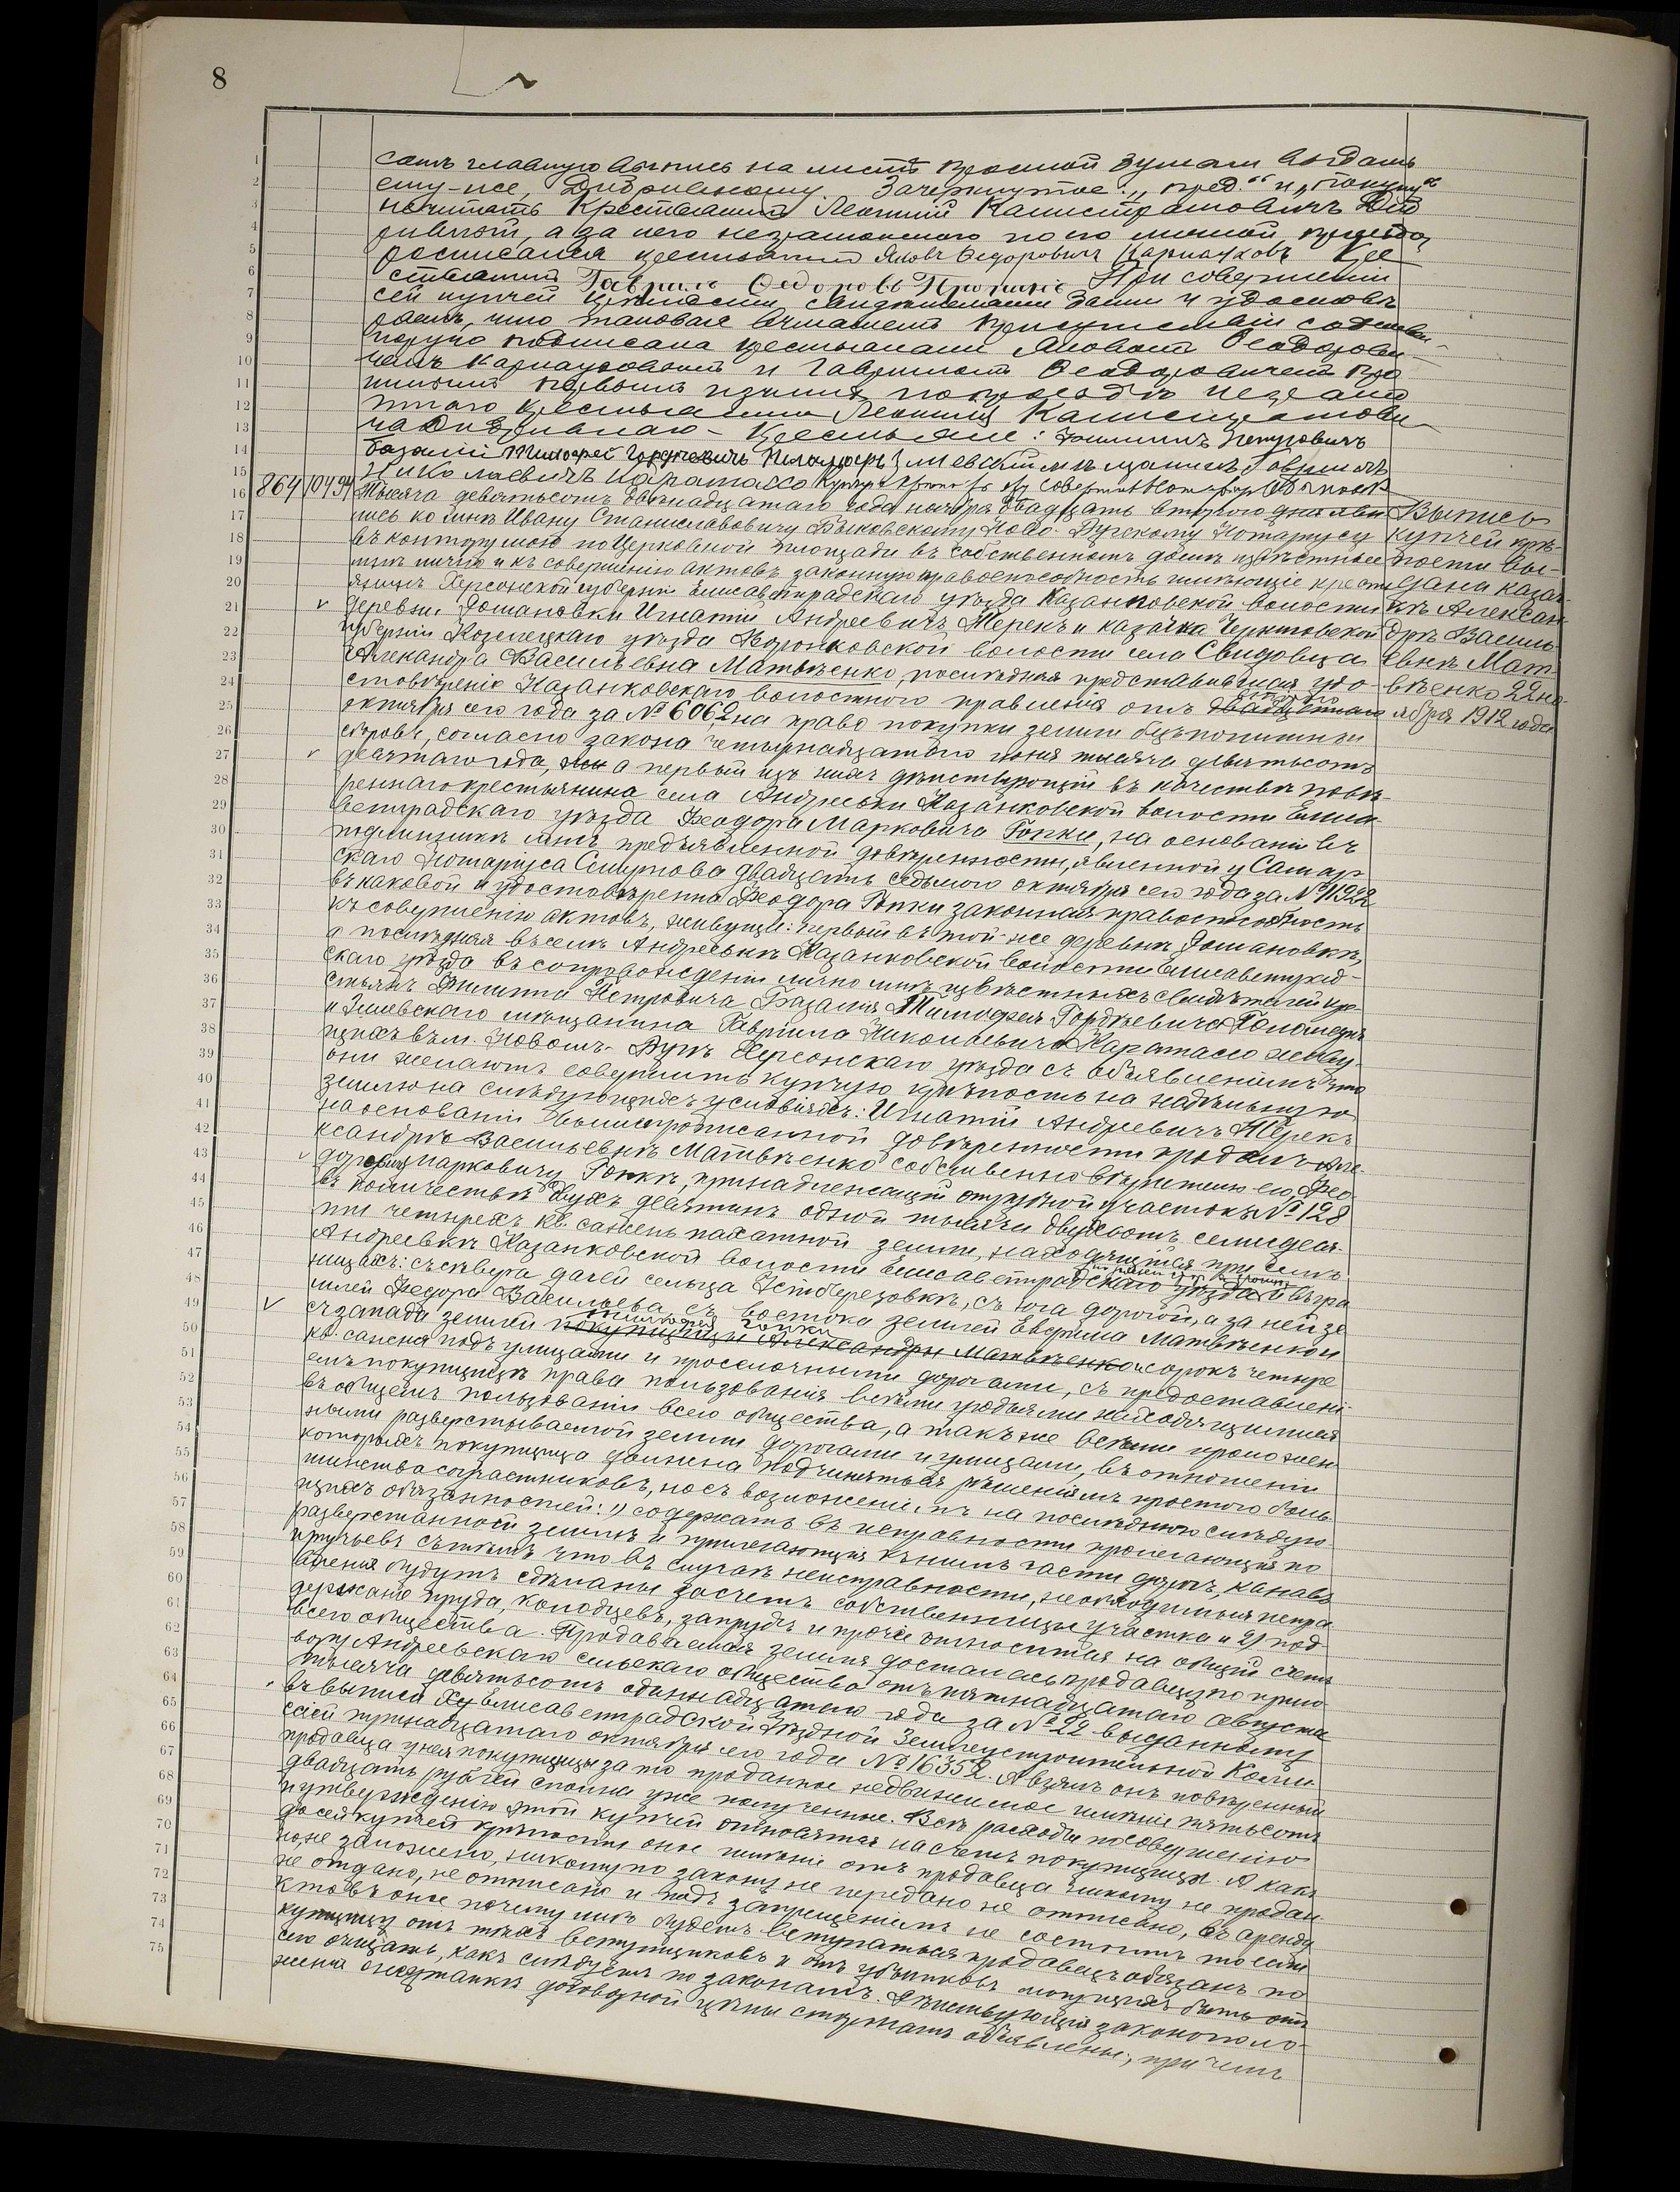 8
самъ главную выпись на листѣ простой бумаги выдать
ему-же, Зачеркнутое: „пред." и „покупу"
не читать. Крестьянинъ Леонтій Калистратовичъ Дѣб
ривный, а за него неграмотнаго по его личной просьбѣ
росписался крестьянинъ Яковъ Федоровичъ Карнауховъ Кре
стьянинъ Гавриилъ Федоровъ При совершеніи
сей купчей крѣпости свидѣтелями были и удостовѣ
ряемъ, что таковая въ нашемъ присутствіи собственно-
ручно подписана крестьянами Яковомъ Феодорови-
чемъ Карнауховымъ и Гавриломъ Феодоровичемъ Про
первымъ изъ нихъ по просьбѣ неграмо
тнаго крестьянина Леонтія Калистратови-
ча Дѣбривнаго – Крестьяне: Филиппъ Петровичъ
Базалій Тимофей Гордѣевичъ Поломаръ Змиевскій мѣщанинъ Гавриилъ
Николаевичъ Каратассо
864 10494 Тысяча девятьсотъ двѣнадцатаго года ноября двадцать второго дня яви
лись ко мнѣ Ивану Станиславовичу Быковскому Ново-Бугскому Нотаріусу
въ контору мою по Церковной площади въ собственномъ домѣ извѣстные
мнѣ лично и къ совершенію актовъ законную правоспособность имѣющіе крестъ
янинъ Херсонской губерніи Елисаветградскаго уѣзда Казанковской волости
деревни Домановки Игнатій Андреевичъ Терекъ и казачка Черниговской
губерніи Козелецкаго уѣзда Кобыжской волости села Свидовца
Александра Васильевна Матвѣенко, послѣдняя представившая удо-
стовѣреніе Казанковскаго волостного правленія отъ второго двадцатаго
октября сего года за № 6062, на право покупки земли
согласно закона четырнадцатаго іюня тысяча девятьсотъ
десятаго года, а первый изъ нихъ дѣйствующій въ качествѣ повѣ-
реннаго крестьянина села Андреевки Казанковской волости Елиса
ветградскаго уѣзда Феодора Марковича Гопки, на основаніи въ
подлинникѣ мнѣ предъявленной довѣренности, явленной у Самар
скаго Нотаріуса Смирнова двадцать седьмого октября сего года за № 11922
въ каковой и удостовѣрена Феодора Гопки законная правоспособность
къ совершенію актовъ, живущіе: первый въ той-же деревнѣ Домановкѣ,
а послѣдняя въ селѣ Андреевкѣ Казанковской волости Елисаветград-
скаго уѣзда въ сопровожденіи лично мнѣ извѣстныхъ свидѣтелей кре-
стьянъ Филиппа Петровича Базалія Тимофея Гордѣевича Поломаръ
и Змиевскаго мѣщанина Гавриила Николаевича Каратассо живу-
щихъ въ м. Новомъ-Бугѣ Херсонскаго уѣзда съ объявленіемъ что
они желаютъ совершить купчую крѣпость на надѣльную
землю на слѣдующихъ условіяхъ: Игнатій Андреевичъ Терекъ
на основаніи вышепрописанной довѣренности продалъ Але-
ксандрѣ Васильевнѣ Матвѣенко собственно вѣрителю его, Фео-
дору Марковичу Гопкѣ, принадлежащій отрубной участокъ № 128
въ количествѣ двухъ десятинъ одной тысячи двухсотъ семидеся-
ти четырехъ кв. сажень пахатной земли, находящійся при селѣ
Андреевкѣ Казанковской волости Елисаветградскаго уѣзда и въ гра
ницахъ: съ сѣвера дачей сельца Устберезовкѣ, съ юга дорогой, а за ней зе
млей Федора Васильева, съ востока землей Евфима Матвѣенко и
съ запада землей покупщицы Александры Матвѣенко и сорокъ четыре
кв. сажня подъ улицами и проселочными дорогами, съ предоставлені-
емъ покупщицѣ права пользованія всѣми угодьями находящимися
въ общемъ пользованіи всего общества, а также всѣми пролоnжен-
ными разверстываемой земли дорогами и улицами, въ отношеніи
которыхъ покупщица должна подчиняться рѣшеніямъ простого боль-
шинства соучастниковъ, но съ возложеніемъ на послѣднюю слѣдую-
щихъ обязанностей: 1) содержать въ исправности пролегающія по
разверстанной землѣ и прилегающія къ нимъ части дорогъ, канавъ
и ручьевъ съ тѣмъ что въ случаѣ неисправности, необходимыя испра
вленія будутъ сдѣланы за счетъ собственницы участка и 2) под-
держаніе пруда, колодцевъ, запрудъ и проч. относится на общій счетъ
всего общества. Продаваемая земля досталась продавцу по приго-
вору Андреевскаго сельскаго общества отъ пятнадцатаго августа
тысяча девятьсотъ одиннадцатаго года за № 22 выданному
въ выписи Елисаветградской Уѣздной Землеустроительной Коми-
ссіей тринадцатаго октября сего года № 16352. А взялъ онъ повѣренный
продавца у нея покупщицы за то проданное недвижимое имѣніе пятьсотъ
двадцать рублей сполна уже полученные. Всѣ расходы по совершенію
и утвержденію этой купчей относятся на счетъ покупщицы. А какъ
до сей купчей крѣпости оное имѣніе отъ продавца никому не прода-
но, не заложено, никому по закону не передано не отписано, въ аренду
не отдано, не отписано и подъ запрещеніемъ не состоитъ то если
кто въ оное почему либо будетъ вступаться продавецъ обязанъ по
купщицу отъ тѣхъ вступщиковъ и отъ убытковъ могущихъ быть отъ
сего очищать, какъ слѣдуетъ по законамъ. Дѣйствующія законополо-
женія о договорной цѣны сторонамъ объявлены, при чемъ
Выпись
купчей крѣ-
пости вы-
дана казач-
кѣ Алексан-
дрѣ Василь-
евнѣ Мат-
вѣенко 22 но-
ября 1912 года